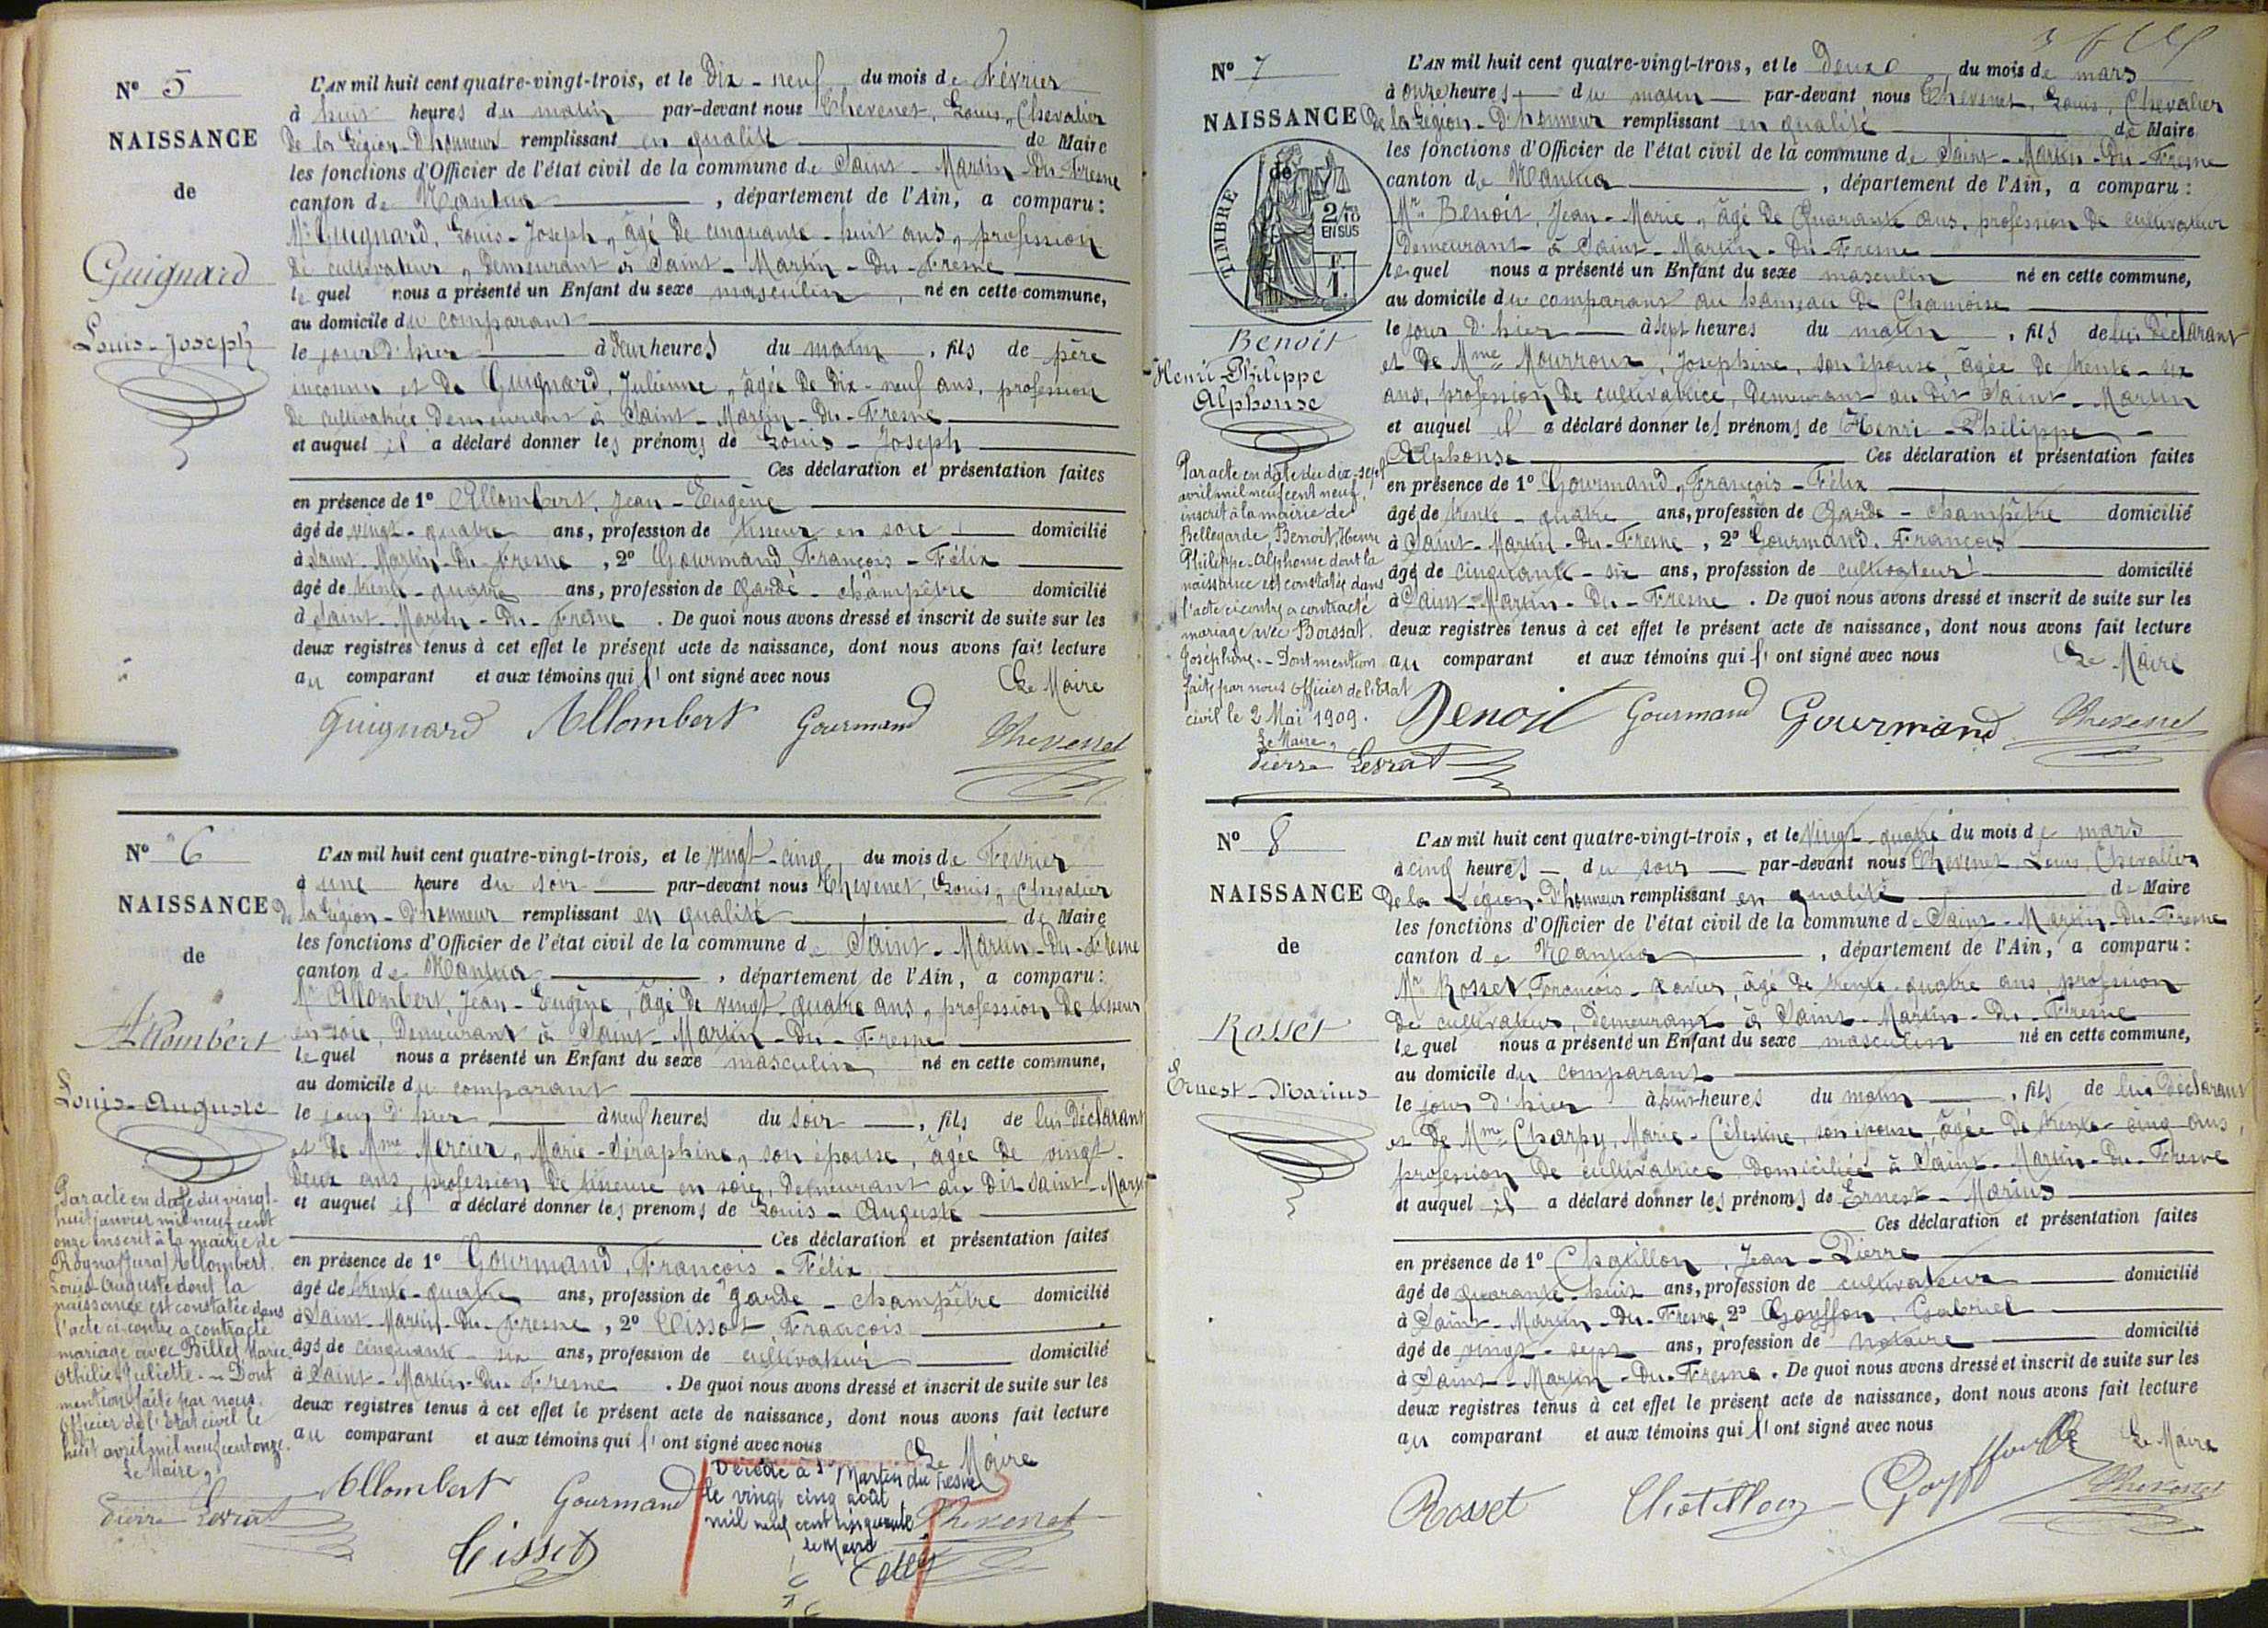 N° 5
NAISSANCE
de
Guignard
Louis-Joseph
L'AN mil huit cent quatre-vingt-trois, et le Dix-neuf du mois de Février
à huit heures du matin par-devant nous Chevenet, Louis, Chevalier
De la Légion-D'honneur remplissant en qualité de Maire
les fonctions d'Officier de l'état civil de la commune de Saint-Martin-Du-Fresne
canton de Nantua, département de l'Ain, a comparu:
Mr Guignard, Louis-Joseph, âgé De cinquante-huit ans, profession
De cultivateur, Demeurant à Saint-Martin-Du-Fresne
lequel nous a présenté un Enfant du sexe masculin, né en cette commune,
au domicile du comparant
le jour D'hier à deux heures du matin, fils de père
inconnu et De Guignard, Julienne, âgée De Dix-neuf ans, profession
De cultivatrice Demeurant à Saint-Martin-Du-Fresne
et auquel il a déclaré donner les prénoms de Louis-Joseph
Ces déclaration et présentation faites
en présence de 1° Allombert, Jean-Eugène
âgé de vingt-quatre ans, profession de tisseur en soie domicilié
à Saint-Martin-Du-Fresne, 2° Gourmand, François-Félix
âgé de trente-quatre ans, profession de Garde-champêtre domicilié
à Saint-Martin-Du-Fresne. De quoi nous avons dressé et inscrit de suite sur les
deux registres tenus à cet effet le présent acte de naissance, dont nous avons fait lecture
au comparant et aux témoins qui l'ont signé avec nous
Le Maire
Guignard Allombert Gourmand Chevenet
N° 6
NAISSANCE
de
Allombert
Louis-Auguste
Par acte en date du vingt-
huit janvier mil neuf cent
onze inscrit à la mairie de
Rogna (Jura) Allombert.
Louis Auguste dont la
naissance est constatée dans
l'acte ci-contre a contracté
mariage avec Billet Marie
Othilie Juliette.-- Dont
mention faite par nous
Officier de l'Etat civil le
huit avril mil neuf cent onze.
Le Maire,
Pierre Levrat
L'AN mil huit cent quatre-vingt-trois, et le vingt-cinq du mois de Février
à une heure du soir par-devant nous Chevenet, Louis, Chevalier
De la Légion-D'honneur remplissant en qualité de Maire
les fonctions d'Officier de l'état civil de la commune de Saint-Martin-Du-Fresne
canton de Nantua, département de l'Ain, a comparu:
Mr Allombert, Jean-Eugène, âgé De vingt-quatre ans, profession De tisseur
en soie, Demeurant à Saint-Martin-Du-Fresne
lequel nous a présenté un Enfant du sexe masculin né en cette commune,
au domicile du comparant
le jour D'hier à neuf heures du soir, fils de lui Déclarant
et De Mme Mercier, Marie-Séraphine, son épouse, âgée De vingt-
Deux ans, profession De tisseuse en soie, Demeurant au Dit Saint-Martin
et auquel il a déclaré donner les prénoms de Louis-Auguste
Ces déclaration et présentation faites
en présence de 1° Gourmand, François-Félix
âgé de trente-quatre ans, profession de garde-champêtre domicilié
à Saint-Martin-Du-Fresne, 2° Cissot, François
âgé de cinquante-six ans, profession de cultivateur domicilié
à Saint-Martin-Du-Fresne. De quoi nous avons dressé et inscrit de suite sur les
deux registres tenus à cet effet le présent acte de naissance, dont nous avons fait lecture
au comparant et aux témoins qui l'ont signé avec nous
Le Maire
Allombert Gourmand Chevenet
Cissot
Décédé à St Martin du Fresne
le vingt cinq août
mil neuf cent cinquante
le Maire
N° 7
NAISSANCE
de
TIMBRE
2/10
EN SUS
F
1.
Benoit
Henri-Philippe
Alphonse
Par acte en date du dix-sept
avril mil neuf cent neuf,
inscrit à la mairie de
Bellegarde, Benoit, Henri
Philippe-Alphonse dont la
naissance est constatée dans
l'acte ci contre a contracté
mariage avec Boissat.
Joséphine.- Dont mention
faite par nous Officier de l'Etat
civil le 2 Mai 1909.
Le Maire,
Pierre Levrat
L'AN mil huit cent quatre-vingt-trois, et le Deux du mois de mars
à onze heures du matin par-devant nous Chevenet, Louis, Chevalier
De la Légion-D'honneur remplissant en qualité de Maire
les fonctions d'Officier de l'état civil de la commune de Saint-Martin-Du-Fresne
canton de Nantua, département de l'Ain, a comparu:
Mr Benoit, Jean-Marie, âgé De Quarante ans, profession De cultivateur
Demeurant à Saint-Martin-Du-Fresne
lequel nous a présenté un Enfant du sexe masculin né en cette commune,
au domicile du comparant au hameau De Chamoise
le jour D'hier à sept heures du matin, fils de lui Déclarant
et De Mme Mourroux, Joséphine, son épouse, âgée De trente-six
ans, profession De cultivatrice, Demeurant au Dit Saint-Martin
et auquel il a déclaré donner les prénoms de Henri-Philippe-
Alphonse Ces déclaration et présentation faites
en présence de 1° Gourmand, François-Félix
âgé de trente-quatre ans, profession de Garde-champêtre domicilié
à Saint-Martin-Du-Fresne, 2° Gourmand, François
âgé de cinquante-six ans, profession de cultivateur domicilié
à Saint-Martin-Du-Fresne. De quoi nous avons dressé et inscrit de suite sur les
deux registres tenus à cet effet le présent acte de naissance, dont nous avons fait lecture
au comparant et aux témoins qui l'ont signé avec nous
Le Maire
Benoit Gourmand Gourmand Chevenet
N° 8
NAISSANCE
de
Rosset
Ernest-Marius
L'AN mil huit cent quatre-vingt-trois, et le vingt-quatre du mois de mars
à cinq heures du soir par-devant nous Chevenet, Louis, Chevalier
De la Légion-D'honneur remplissant en qualité de Maire
les fonctions d'Officier de l'état civil de la commune de Saint-Martin-Du-Fresne
canton de Nantua, département de l'Ain, a comparu:
Mr Rosset, François-Xavier, âgé de trente-quatre ans, profession
De cultivateur, Demeurant à Saint-Martin-Du-Fresne
lequel nous a présenté un Enfant du sexe masculin né en cette commune,
au domicile du comparant
le jour D'hier à huit heures du matin, fils de lui Déclarant
et De Mme Charpy, Marie-Célestine, son épouse, âgée De trente-cinq ans,
profession De cultivatrice Domiciliée à Saint-Martin-Du-Fresne
et auquel il a déclaré donner les prénoms de Ernest-Marius
Ces déclaration et présentation faites
en présence de 1° Chatillon, Jean-Pierre
âgé de quarante-huit ans, profession de cultivateur domicilié
à Saint-Martin-Du-Fresne, 2° Gouffon, Gabriel
âgé de vingt-sept ans, profession de notaire domicilié
à Saint-Martin-Du-Fresne. De quoi nous avons dressé et inscrit de suite sur les
deux registres tenus à cet effet le présent acte de naissance, dont nous avons fait lecture
au comparant et aux témoins qui l'ont signé avec nous
Le Maire
Rosset Chatillon Chevenet